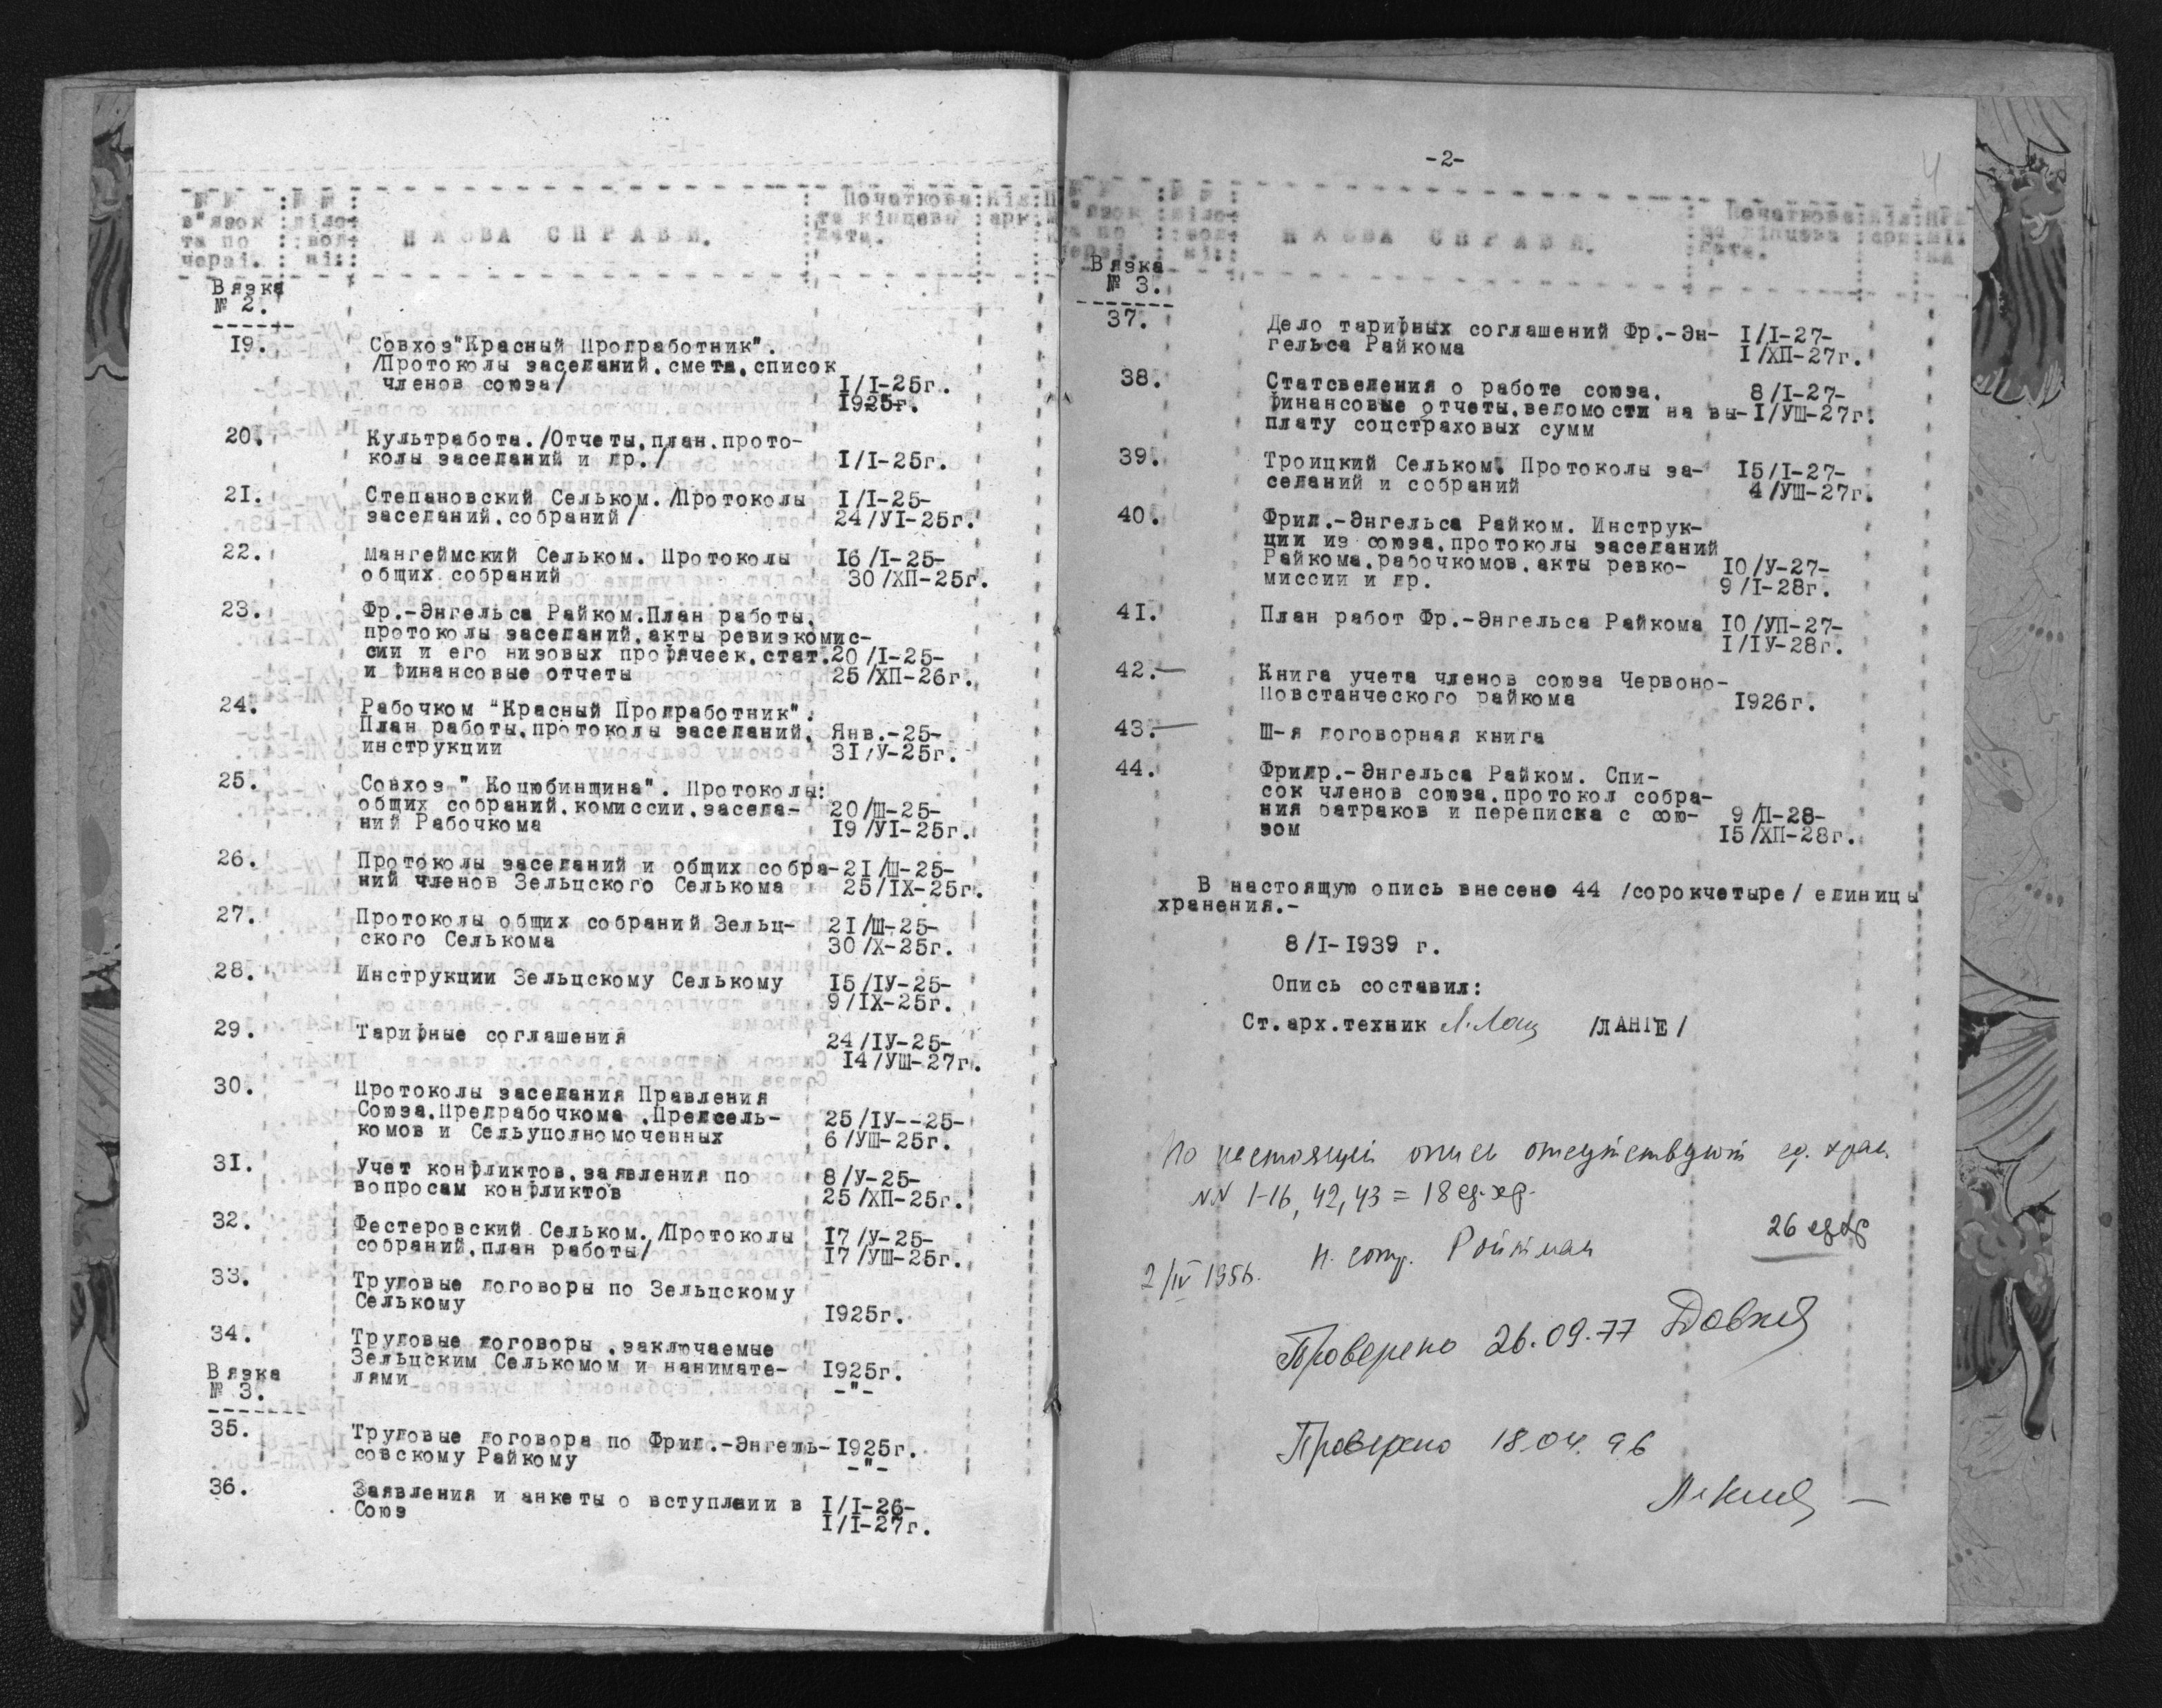 № № : № № : Початкова : Кіл :
в"язок : діло- : НАЗВА СПРАВИ. : та кінцева : арк :
та по : вод- : дата.
черзі. : ві:
Вязка
№ 2.
19. Совхоз"Красный Продработник".
/Протоколы заседаний.смета.список
членов союза/ I/I-25г.
1925г.
20. Культработа./Отчеты.план.прото-
колы заседаний и др./ I/I-25г.
21. Степановский Сельком./Протоколы I/I-25-
заседаний.собраний/ 24/УI-25г.
22. Мангеймский Сельком. Протоколы I6/I-25-
общих собраний 30/ХП-25г.
23. Фр.-Энгельса Райком.План работы.
протоколы заседаний.акты ревизкомис-
сии и его низовых профячеек.стат. 20/I-25-
и финансовые отчеты 25/ХП-26г.
24. Рабочком "Красный Продработник".
План работы.протоколы заседаний. Янв.-25-
инструкции 3I/У-25г.
25. Совхоз " Коцюбинщина". Протоколы:
общих собраний.комиссии.заседа- 20/Ш-25-
ний Рабочкома I9/УI-25г.
26. Протоколы заседаний и общих собра- 2I/Ш-25-
ний членов Зельцского Селькома 25/IХ-25г.
27. Протоколы общих собраний Зельц- 2I/Ш-25-
ского Селькома 30/Х-25г.
28. Инструкции Зельцскому Селькому I5/IУ-25-
9/IХ-25г.
29. Тарифные соглашения 24/IУ-25-
I4/УШ-27г.
30. Протоколы заседания Правления
Союза.Предрабочкома .Предсель- 25/IУ--25-
комов и Сельуполномоченных 6/УШ-25г.
31. Учет конфликтов.заявления по 8/У-25-
вопросам конфликтов 25/ХП-25г.
32. Фестеровский Сельком./Протоколы I7/У-25-
собраний.план работы/ I7/УШ-25г.
33. Трудовые договоры по Зельцскому
Селькому I925г.
34. Трудовые договоры .заключаемые
Зельцским Селькомом и нанимате- I925г.
лями -"-
Вязка
№ 3.
35. Трудовые договора по Фрид.-Энгель- I925г.
совскому Райкому -"-
36. Заявления и анкеты о вступлении в I/I-26-
Союз I/I-27г.
-2-
4
№ № : № № : Початкова : Кіл : При
"язок : діло- : НАЗВА СПРАВИ. : та кінцева : арк : міт
та по : вод- : дата. : ка
черзі. : ві:
Вязка
№ 3.
37. Дело тарифных соглашений Фр.-Эн- I/I-27-
гельса Райкома I/ХП-27г.
38. Статсведения о работе союза. 8/I-27-
финансовые отчеты.ведомости на вы- I/УШ-27г.
плату соцстраховых сумм
39. Троицкий Сельком. Протоколы за- I5/I-27-
седаний и собраний 4/УШ-27г.
40. Фрид.-Энгельса Райком. Инструк-
ции из союза.протоколы заседаний
Райкома.рабочкомов.акты ревко- I0/У-27-
миссии и др. 9/I-28г.
41. План работ Фр.-Энгельса Райкома I0/УП-27-
I/IУ-28г.
42.— Книга учета членов союза Червоно-
Повстанческого райкома I926г.
43.— Ш-я договорная книга
44. Фридр.-Энгельса Райком. Спи-
сок членов союза.протокол собра-
ния батраков и переписка с сою- 9/П-28-
зом I5/ХП-28г.
В настоящую опись внесено 44 /сорокчетыре/ единицы
хранения.-
8/I-I939 г.
Опись составил:
Ст.арх.техник /ЛАНГЕ/
По настоящей описи отсутствуют ед. хран.
NN 1-16, 42, 43 = 18 ед.хр.
26 ед хр
2/IV 1956. Н. сотр. Ройтман
Проверено 26.09.77
Проверено 18.04.96